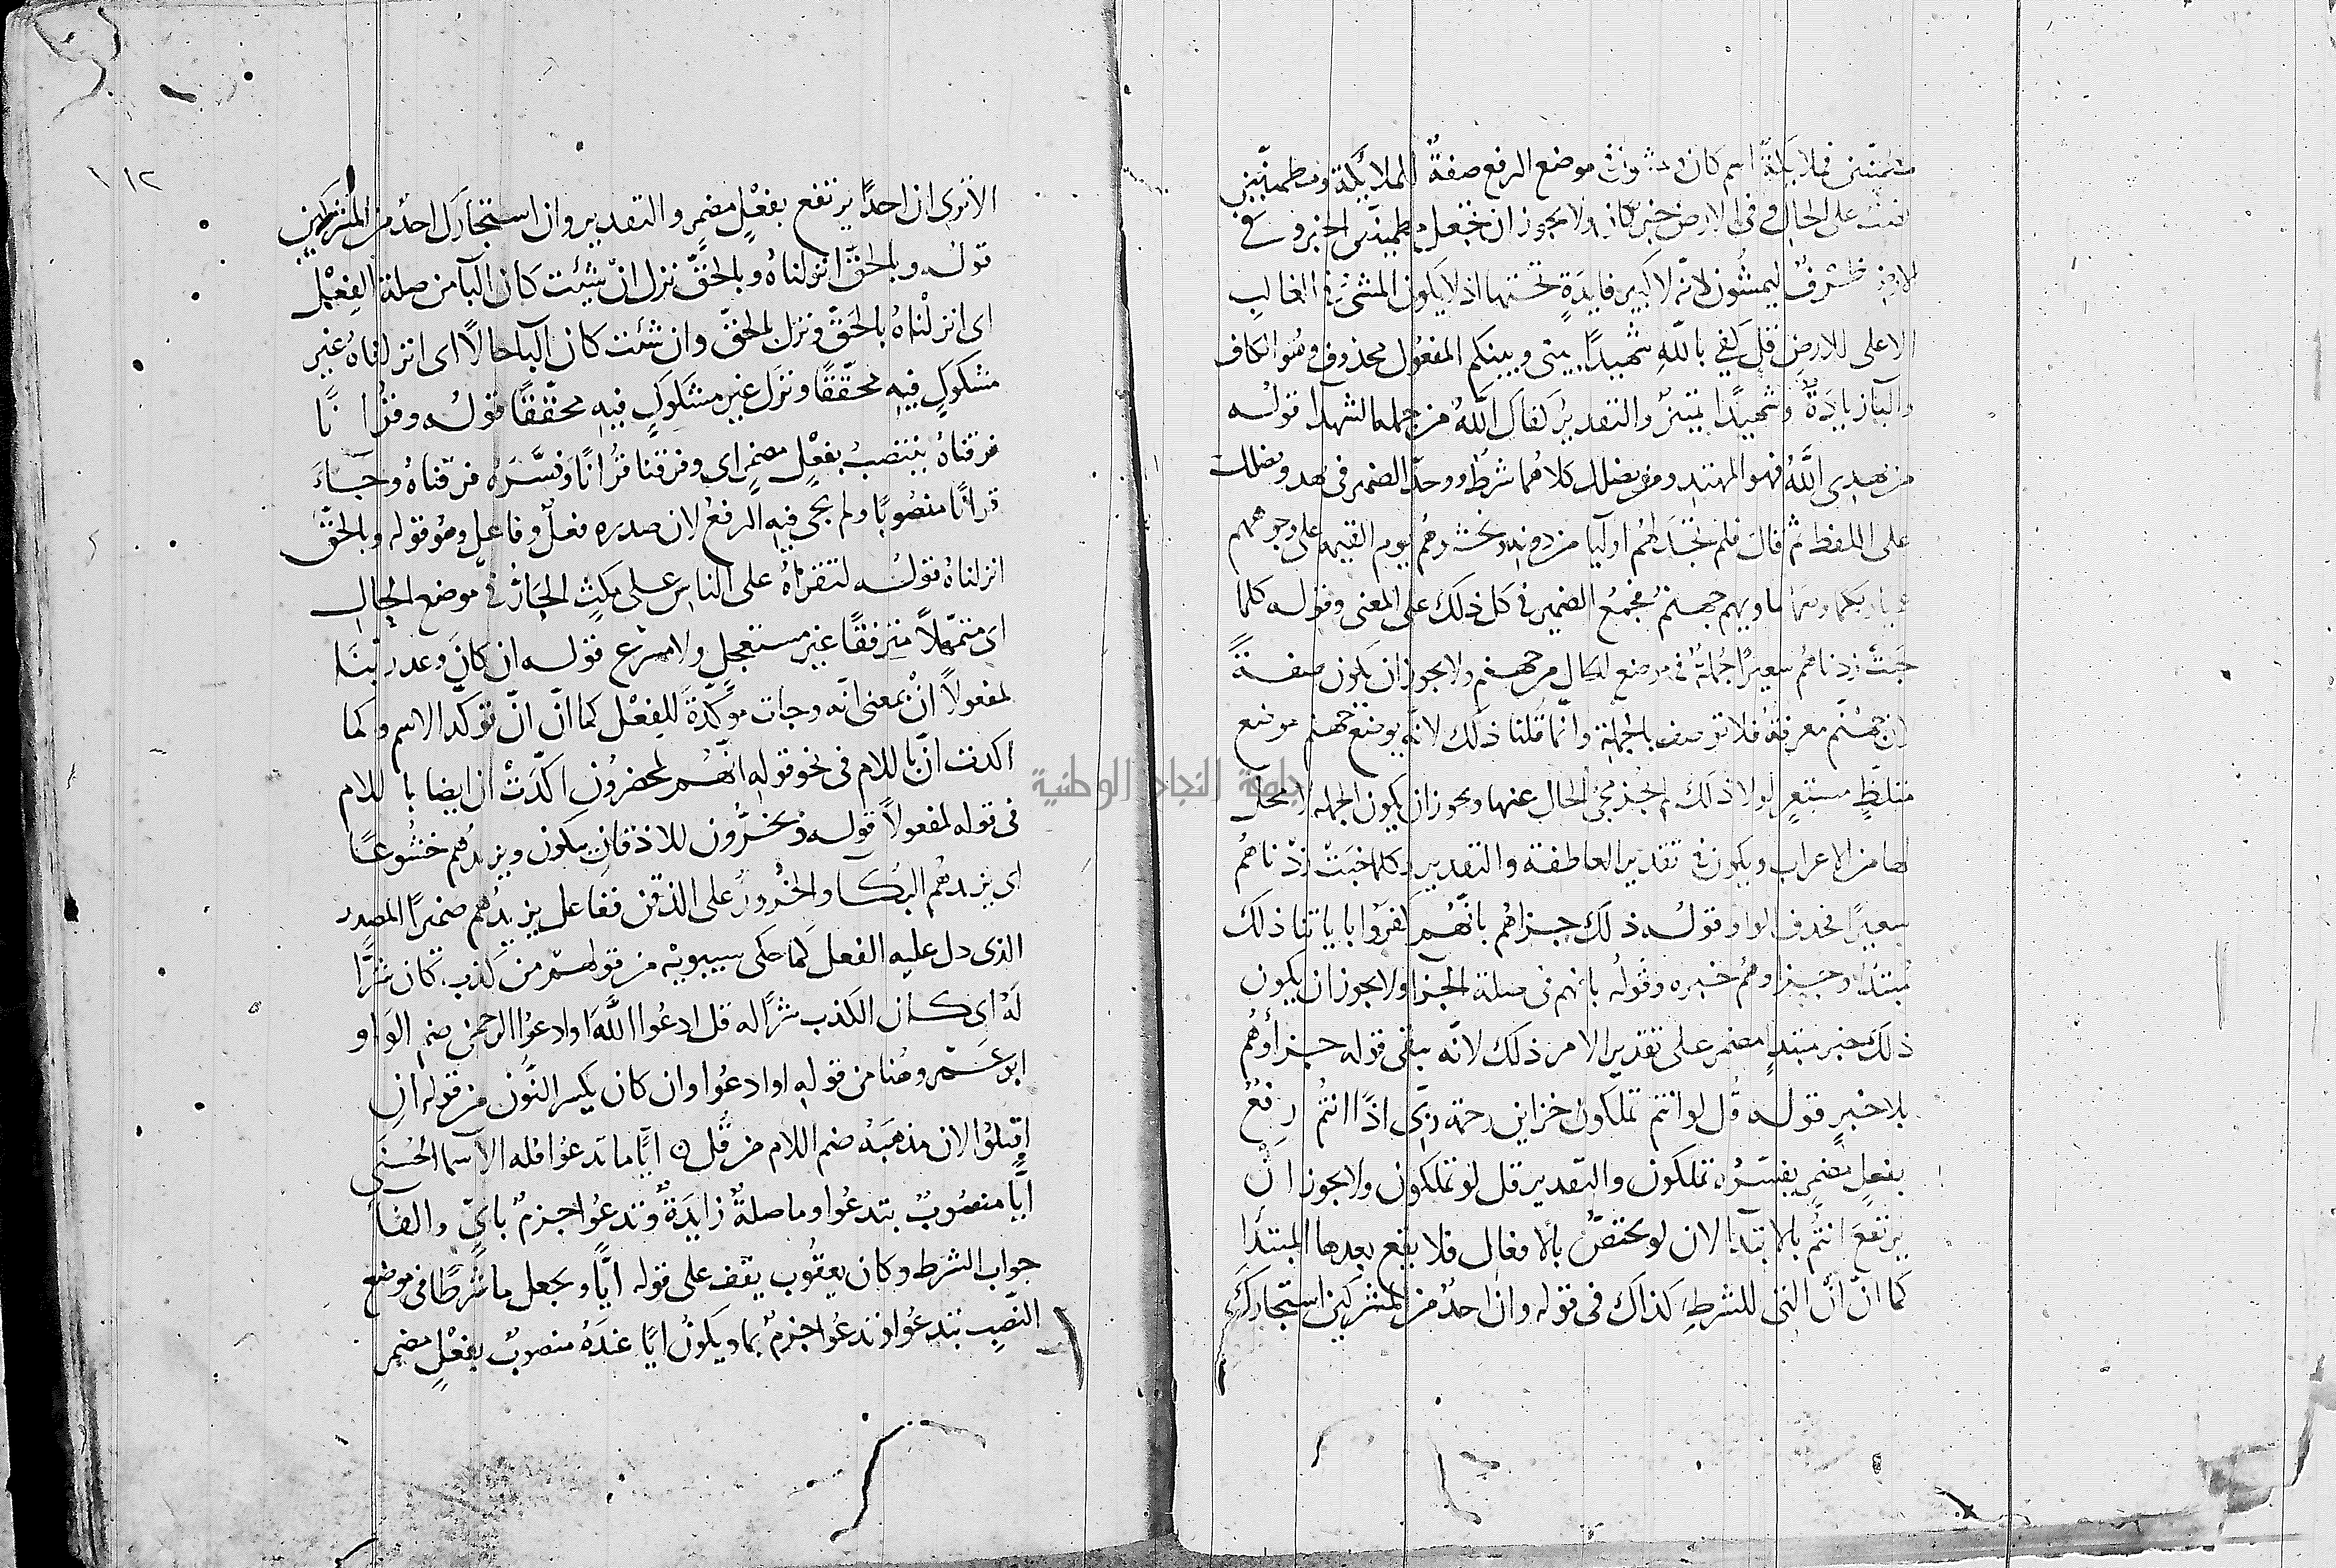 مطمئنين فملائكة اسم كان ويمشون موضع الرفع صفة للملائكة ومطمئنين
نصب على الحال وفى الارض خبر كان ولا يجوز ان تجعل مطمئنين الخبر وفى
الارض ظرف ليمشون لانه لا كبير فايدة تحتها اذ لا يكون المشى فى الغالب
الا على الارض قل كفى بالله شهيدًا بينى وبينكم المفعول محذوف وهو الكاف
والبا زيادة وشهيدًا تمييز والتقدير كفاك الله من جملة الشهدا قوله
من يهدى الله فهو المهتد ومن يضلل كلاهما شرط ووحد الضمير فى يهد ويضلل
على اللفظ ثم قال فلم تجد لهم اوليا من دونه ونحشرهم يوم القيمة على وجوههم
عميا وبكما وصما ماويهم جهنم فجمع الضمير فى كل ذلك على المعنى وقوله كلما
خبت زدناهم سعيرًا جملة فى موضع الحال من جهنم ولا يجوز ان يكون صفة
لان جهنم معرفة فلا توصف بالجملة وانما قلنا ذلك لانه يوضع جهنم موضع
متلظٍ مستعرٍ لولا ذلك لم يجز مجئ الحال عنها ويجوز ان يكون الجملة لا محل
لها من الاعراب ويكون فى تقدير العاطفة والتقدير وكلما خبت زدناهم
سعيرًا فحذف الواو قوله ذلك جزاهم بانهم كفروا باياتنا ذلك
مبتدأ وجزاوهم خبره وقوله بانهم فى صلة الجزا ولا يجوز ان يكون
ذلك خبر مبتدإ مضمر على تقدير الامر ذلك لانه يبقى قوله جزاؤهم
بلا خبرٍ قوله قل لو انتم تملكون خزاين رحمة ربى اذًا انتم رفع
بفعلٍ مضمرٍ يفسره تملكون والتقدير قل لو تملكون ولا يجوز ان
يرتفع انتم بالابتدا لان لو يختص بالافعال فلا يقع بعدها المبتدا
كما ان ان التى للشرط كذاك فى قوله وان احد من المشركين استجارك
١١٢
الا ترى ان احدًا يرتفع بفعلٍ مضمرٍ والتقدير وان استجارك احد من المشركين
قوله وبالحق انزلناه وبالحق نزل ان شئت كان البا من صلة الفعل
اى انزلناه بالحق ونزل بالحق وان شئت كان البا حالاً اى انزلناه غير
مشكوكٍ فيه محققًا ونزل غير مشكوكٍ فيه محققًا قوله وقرانًا
فرقناه ينتصب بفعلٍ مضمرٍ اى وفرقنا قرانًا وفسره فرقناه وجاء
قرانًا منصوبًا ولم يجى فيه الرفع لان صدره فعل وفاعل وهو قوله وبالحق
انزلناه قوله لتقراه على الناس على مكث الجار فى موضع الحال
اى متمهلاً مترفقًا غير مستعجل ولا مسرع قوله ان كان وعد ربنا
لمفعولاً ان بمعنى انه وجات موكدة للفعل كما ان ان توكد الاسم وكما
اكدت ان باللام فى نحو قوله انهم لمحضرون اكدت ان ايضا باللام
فى قوله لمفعولاً قوله ويخرون للاذقان يبكون ويزيدهم خشوعًا
اى يزيدهم البكا والخرور على الذقن ففاعل يزيدهم ضمير المصدر
الذى دل عليه الفعل كما حكى سيبويه من قولهم من كذب كان شرًّا
له اى كان الكذب شرًا له قل ادعوا الله او ادعوا الرحمن ضم الواو
ابو عمرو هنا من قوله او ادعوا وان كان يكسر النون من قوله ان
اقتلوا لان مذهبه ضم اللام من قل ايًّا ما تدعوا فله الاسما الحسنى
ايًّا منصوب بتدعوا وما صلة زايدة وتدعوا جزم باىّ والفا
جواب الشرط وكان يعقوب يقف على قوله ايًّا ويجعل ما شرطًا فى موضع
النصب بتدعوا وتدعوا جزم بما ويكون ايًا عنده منصوب بفعلٍ مضمر
جامعة النجاح الوطنية